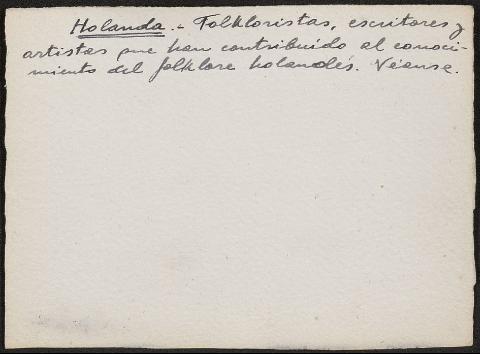 Holanda.- Folkloristas, escritores y
artistas que han contribuído al conoci-
miento del folklore holandés. Véanse.